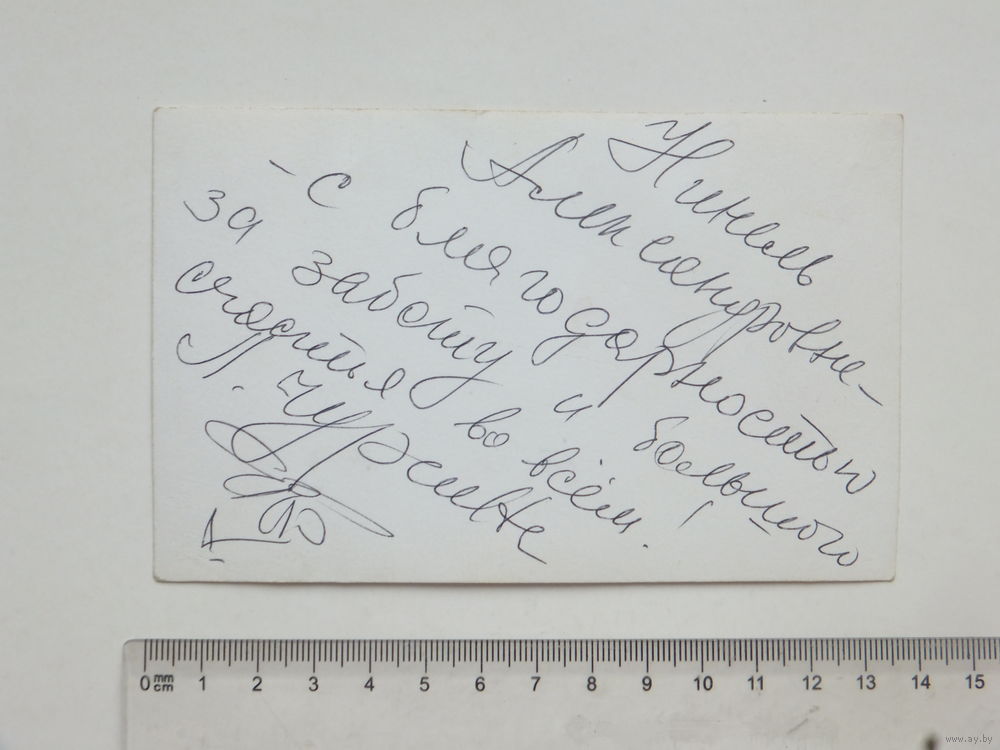 Нинель
Александровне –
– С благодарностью
за заботу и большого
счастья во всём!
Л.
0 mm cm 1 2 3 4 5 6 7 8 9 10 11 12 13 14 15
www.ay.by